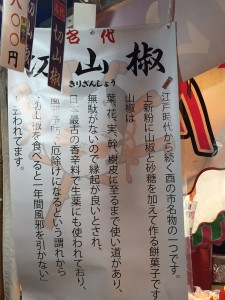 名代
切山椒
きりざんしょう
江戸時代から続く酉の市名物の一つです。
上新粉に山椒と砂糖を加えて作る餅菓子です
山椒は
葉、花、実、幹、樹皮に至るまで使い道があり、
無駄がないので縁起が良いとされ、
日本最古の香辛料で生薬にも使われており、
厄除けになるという謂れから
切山椒を食べると一年間風邪を引かない
云われてます。
切山
〇〇円